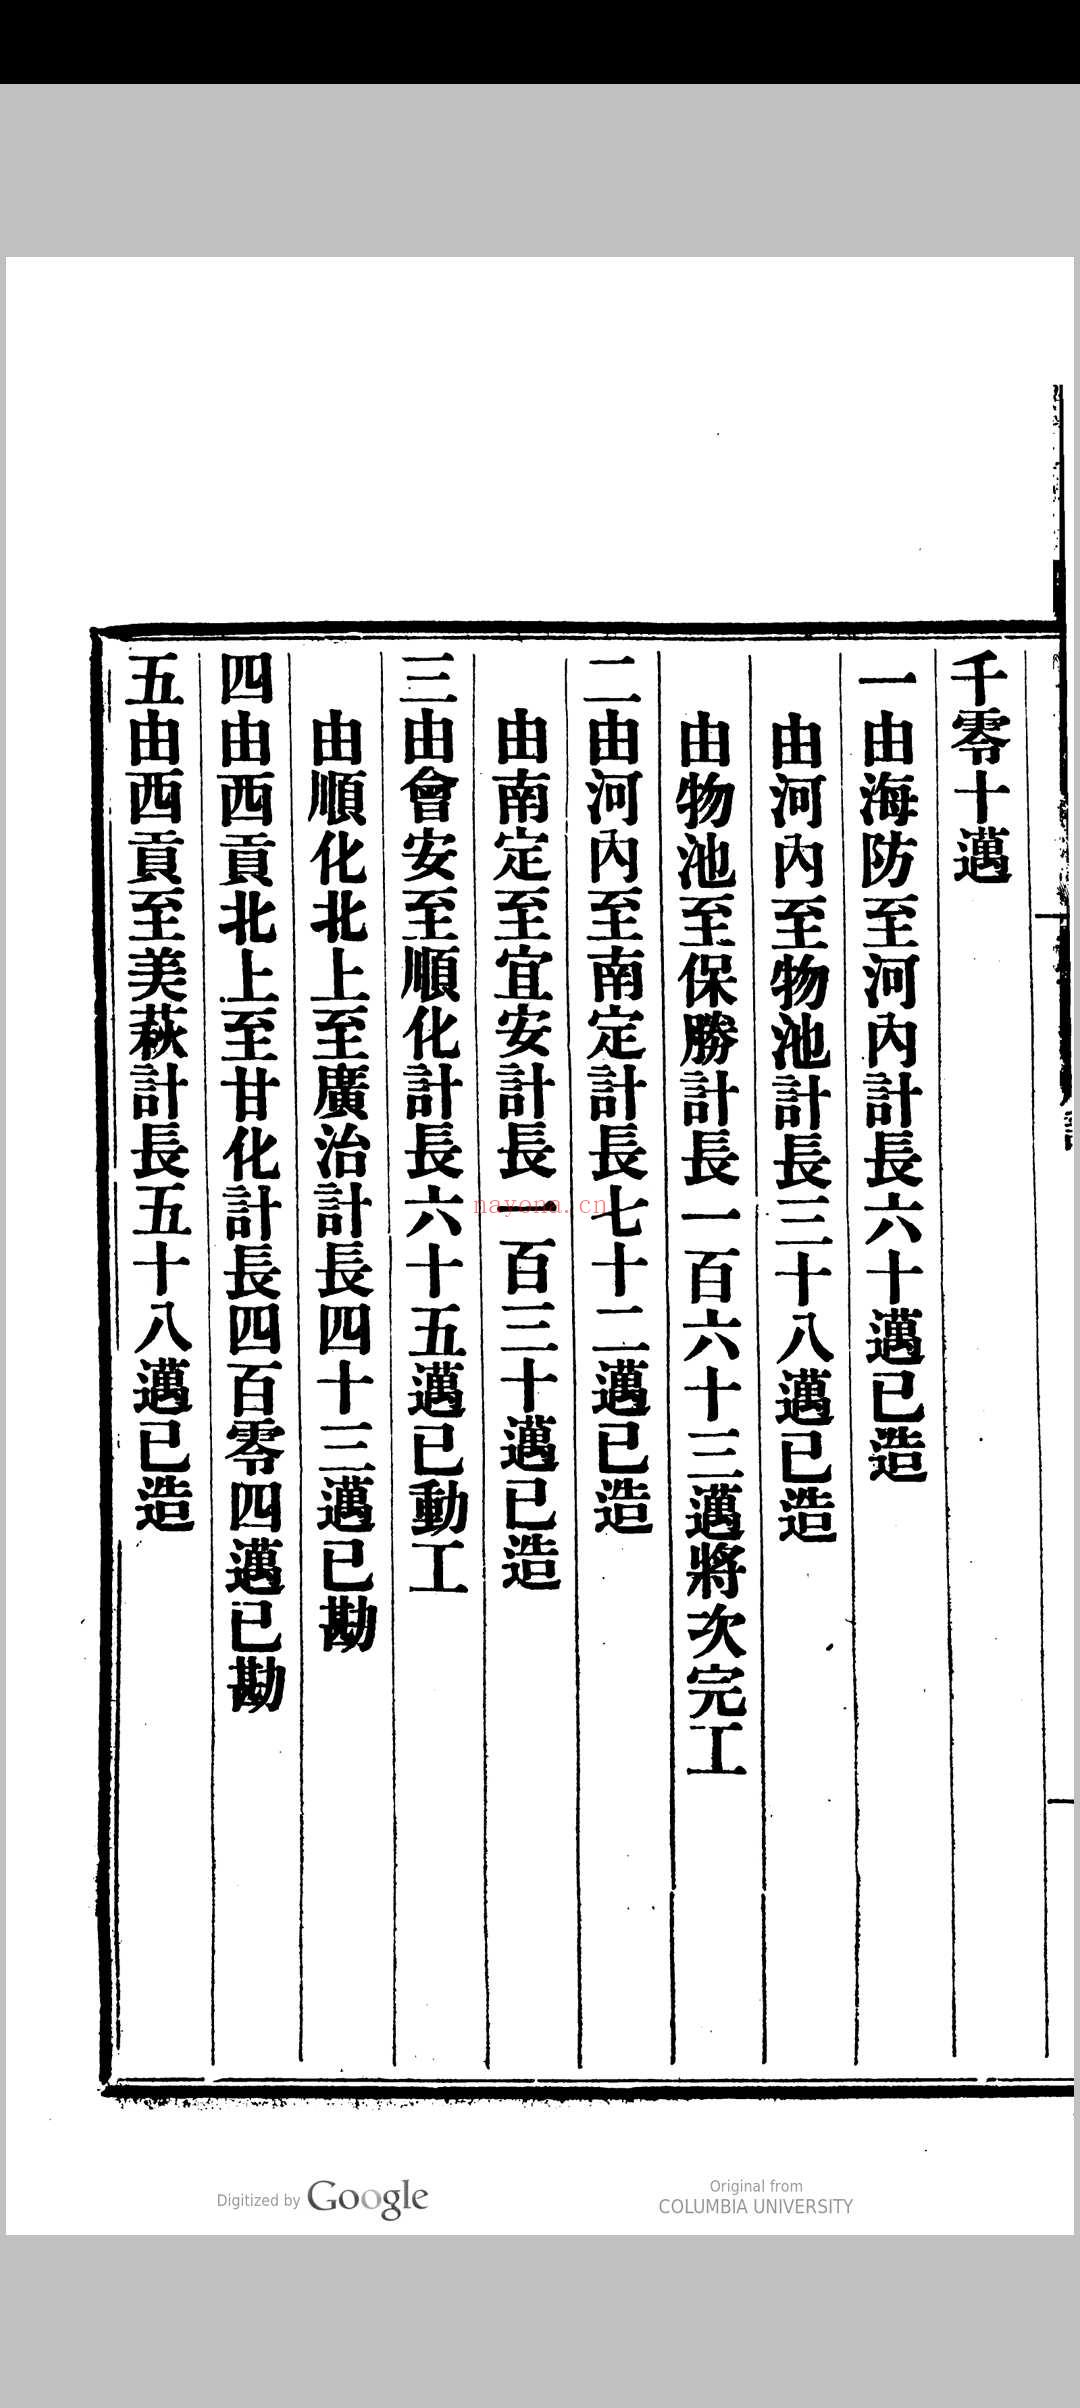 千零十邁
一由海防至河內計長六十邁已造
由河內至物池計長三十八邁已造
由物池至保勝計長一百六十三邁將次完工
二由河內至南定計長七十二邁已造
由南定至宜安計長一百三十邁已造
三由會安至順化計長六十五邁已動工
由順化北上至廣治計長四十三邁已勘
四由西貢北上至甘化計長四百零四邁已勘
五由西貢至美萩計長五十八邁已造
nayona.cn
Digitized by Google
Original from
COLUMBIA UNIVERSITY